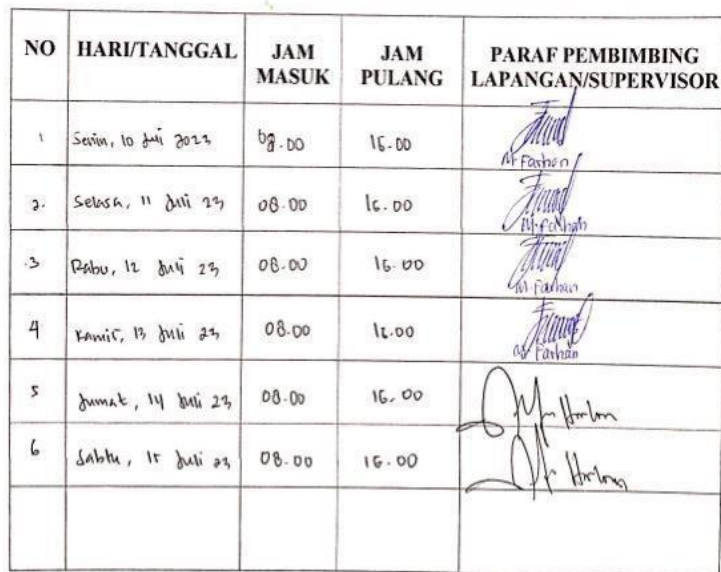 NO HARI/TANGGAL JAM MASUK JAM PULANG PARAF PEMBIMBING LAPANGAN/SUPERVISOR
1 Senin, 10 Juli 2023 08.00 16.00 M. Farhan
2. Selasa, 11 Juli 23 08.00 16.00 M. Farhan
3 Rabu, 12 Juli 23 08.00 16.00 M. Farhan
4 Kamis, 13 Juli 23 08.00 16.00 M. Farhan
5 Jumat, 14 Juli 23 08.00 16.00
6 Sabtu, 15 Juli 23 08.00 16.00